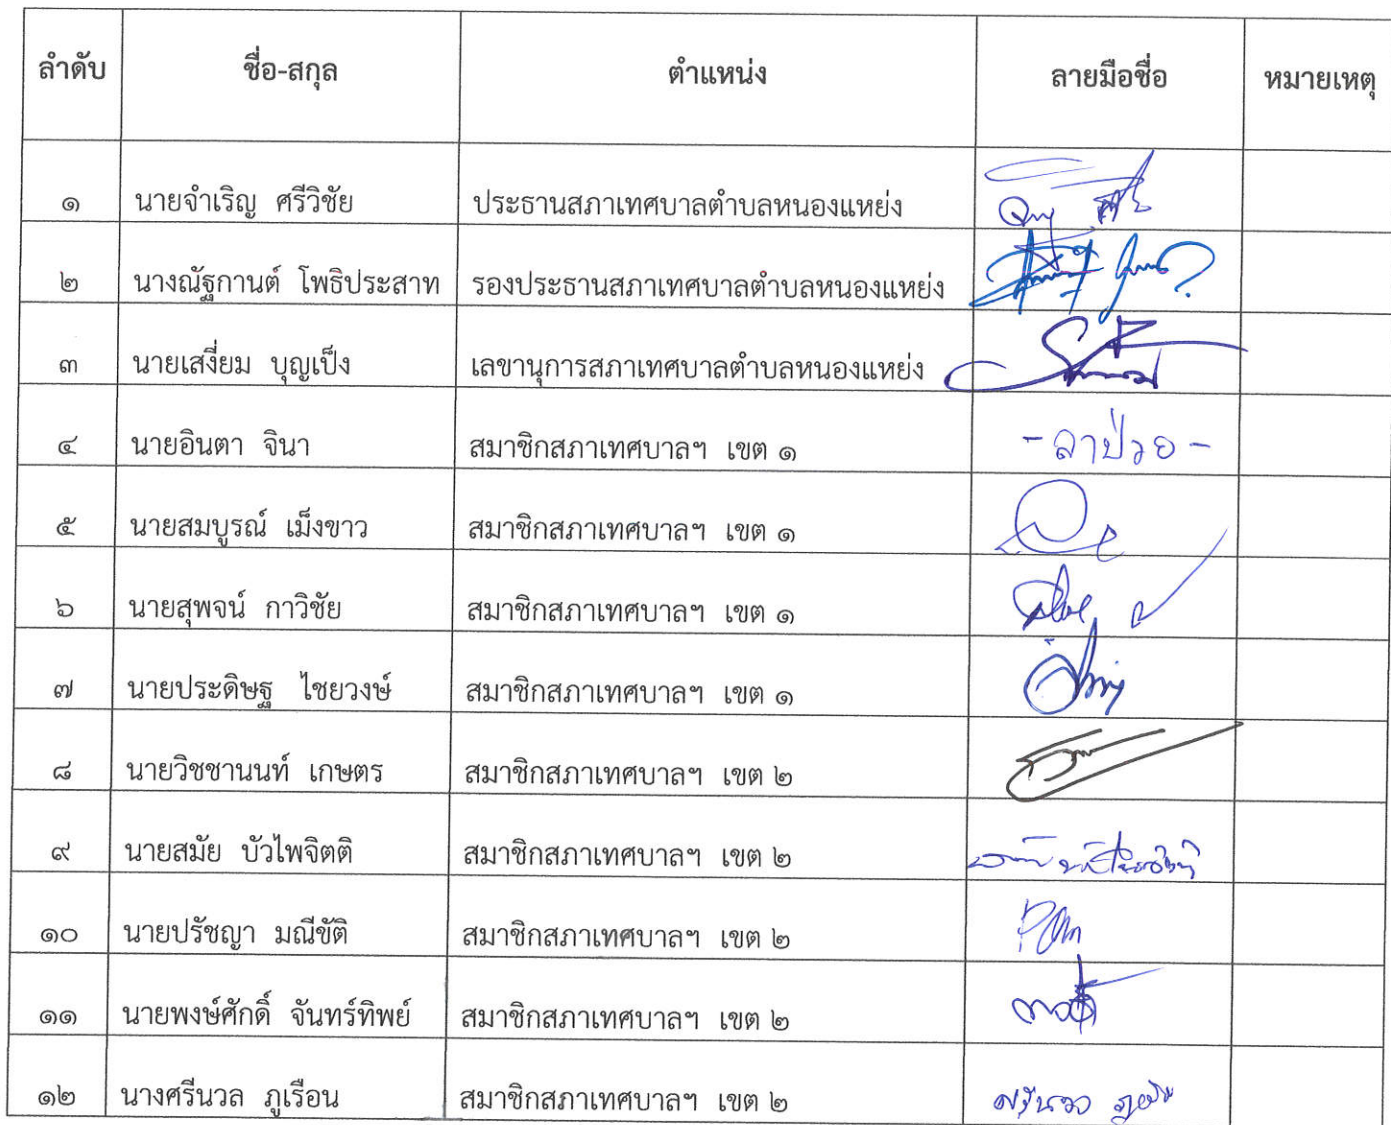 ลำดับ ชื่อ-สกุล ตำแหน่ง ลายมือชื่อ หมายเหตุ
๑ นายจำเริญ ศรีวิชัย ประธานสภาเทศบาลตำบลหนองแหย่ง
๒ นางณัฐกานต์ โพธิประสาท รองประธานสภาเทศบาลตำบลหนองแหย่ง
๓ นายเสงี่ยม บุญเป็ง เลขานุการสภาเทศบาลตำบลหนองแหย่ง
๔ นายอินตา จินา สมาชิกสภาเทศบาลฯ เขต ๑ -ลาป่วย-
๕ นายสมบูรณ์ เม็งขาว สมาชิกสภาเทศบาลฯ เขต ๑
๖ นายสุพจน์ กาวิชัย สมาชิกสภาเทศบาลฯ เขต ๑
๗ นายประดิษฐ ไชยวงษ์ สมาชิกสภาเทศบาลฯ เขต ๑
๘ นายวิชชานนท์ เกษตร สมาชิกสภาเทศบาลฯ เขต ๒
๙ นายสมัย บัวไพจิตติ สมาชิกสภาเทศบาลฯ เขต ๒
๑๐ นายปรัชญา มณีขัติ สมาชิกสภาเทศบาลฯ เขต ๒
๑๑ นายพงษ์ศักดิ์ จันทร์ทิพย์ สมาชิกสภาเทศบาลฯ เขต ๒
๑๒ นางศรีนวล ภูเรือน สมาชิกสภาเทศบาลฯ เขต ๒ ศรีนวล ภูเรือน